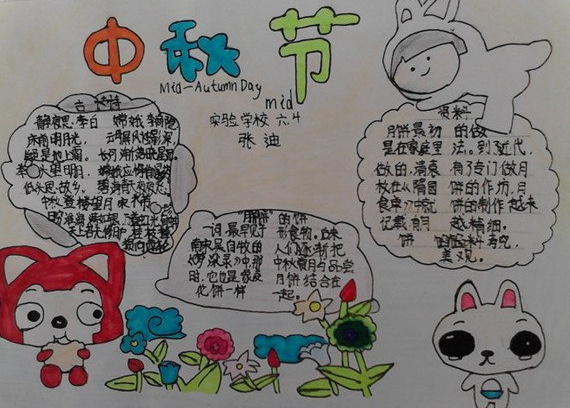 中秋节
Mid-Autumn Day
mid
实验学校 六.4
张迪
古代诗
静夜思 李白
床前明月光，
疑是地上霜。
举头望明月，
低头思故乡。
嫦娥 李商隐
云母屏风烛影深，
长河渐落晓星沉。
嫦娥应悔偷灵药，
碧海青天夜夜心。
中秋登楼望月 米芾
"月饼"
一词，最早见于
南宋吴自牧的
《梦梁录》中，那
时，它也是像菱
花饼一样
的饼
形食物。后来
人们逐渐把
中秋赏月与品尝
月饼结合在
一起。
资料
月饼最初
是在家庭里
做的，清袁
枚在《隋园
食单》中就
记载有月
饼
的做
法。到近代，
有了专门做月
饼的作坊，月
饼的制作越来
越精细。
美观。